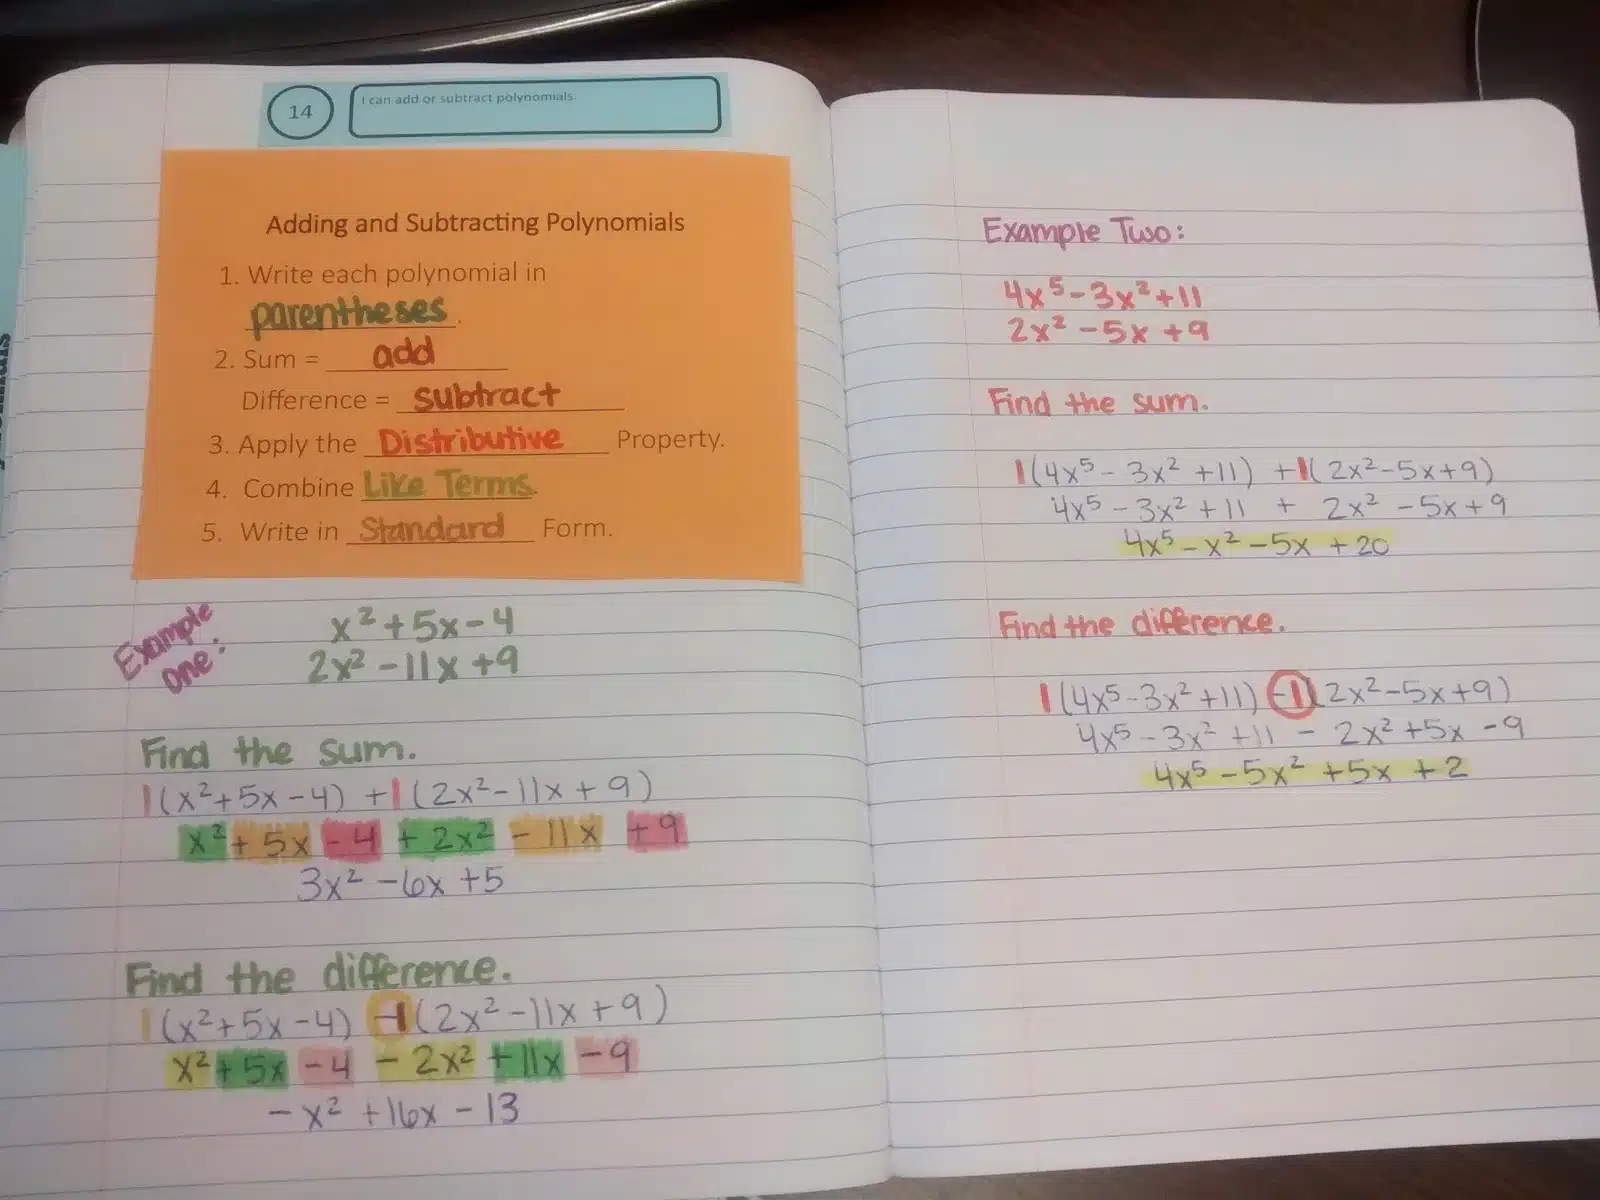 14
I can add or subtract polynomials.
Adding and Subtracting Polynomials
1. Write each polynomial in
parentheses.
2. Sum = add
Difference = subtract
3. Apply the Distributive Property.
4. Combine Like Terms.
5. Write in Standard Form.
Example
one:
x² + 5x - 4
2x² - 11x + 9
Find the sum.
1(x² + 5x - 4) + 1(2x² - 11x + 9)
x² + 5x - 4 + 2x² - 11x + 9
3x² - 6x + 5
Find the difference.
1(x² + 5x - 4) -1(2x² - 11x + 9)
x² + 5x - 4 - 2x² + 11x - 9
- x² + 16x - 13
Example Two:
4x⁵ - 3x² + 11
2x² - 5x + 9
Find the sum.
1(4x⁵ - 3x² + 11) + 1(2x² - 5x + 9)
4x⁵ - 3x² + 11 + 2x² - 5x + 9
4x⁵ - x² - 5x + 20
Find the difference.
1(4x⁵ - 3x² + 11) -1(2x² - 5x + 9)
4x⁵ - 3x² + 11 - 2x² + 5x - 9
4x⁵ - 5x² + 5x + 2